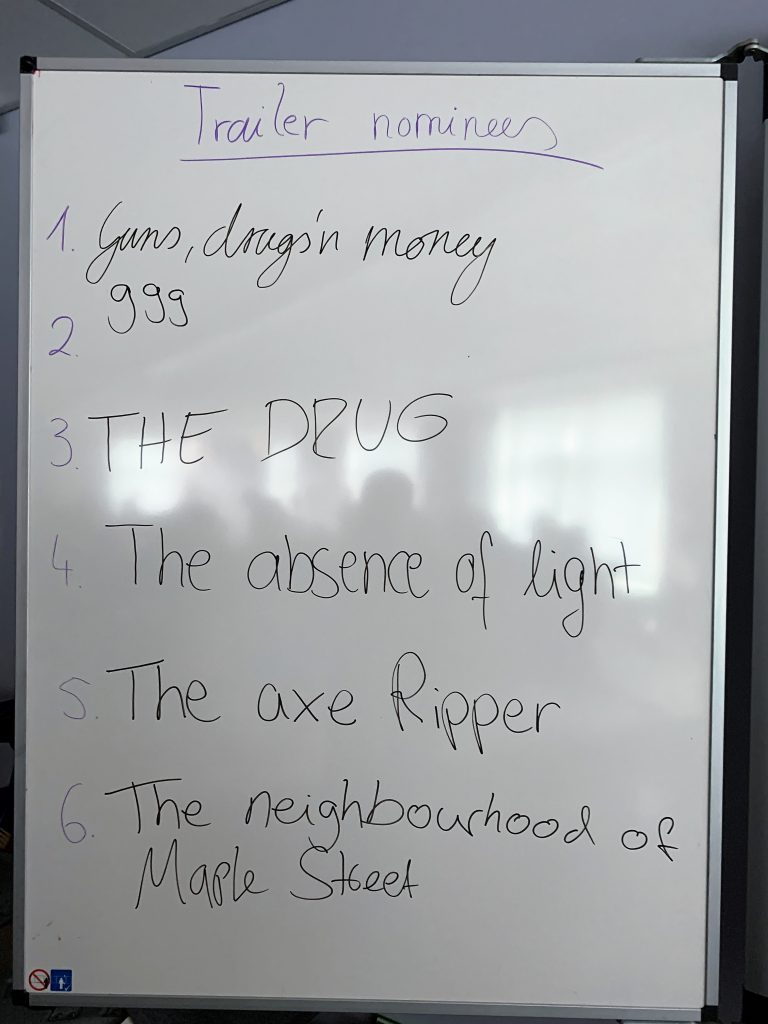 Trailer nominees
1. Guns, drugs'n money
2. ggg
3. THE DRUG
4. The absence of light
5. The axe Ripper
6. The neighbourhood of
Maple Street